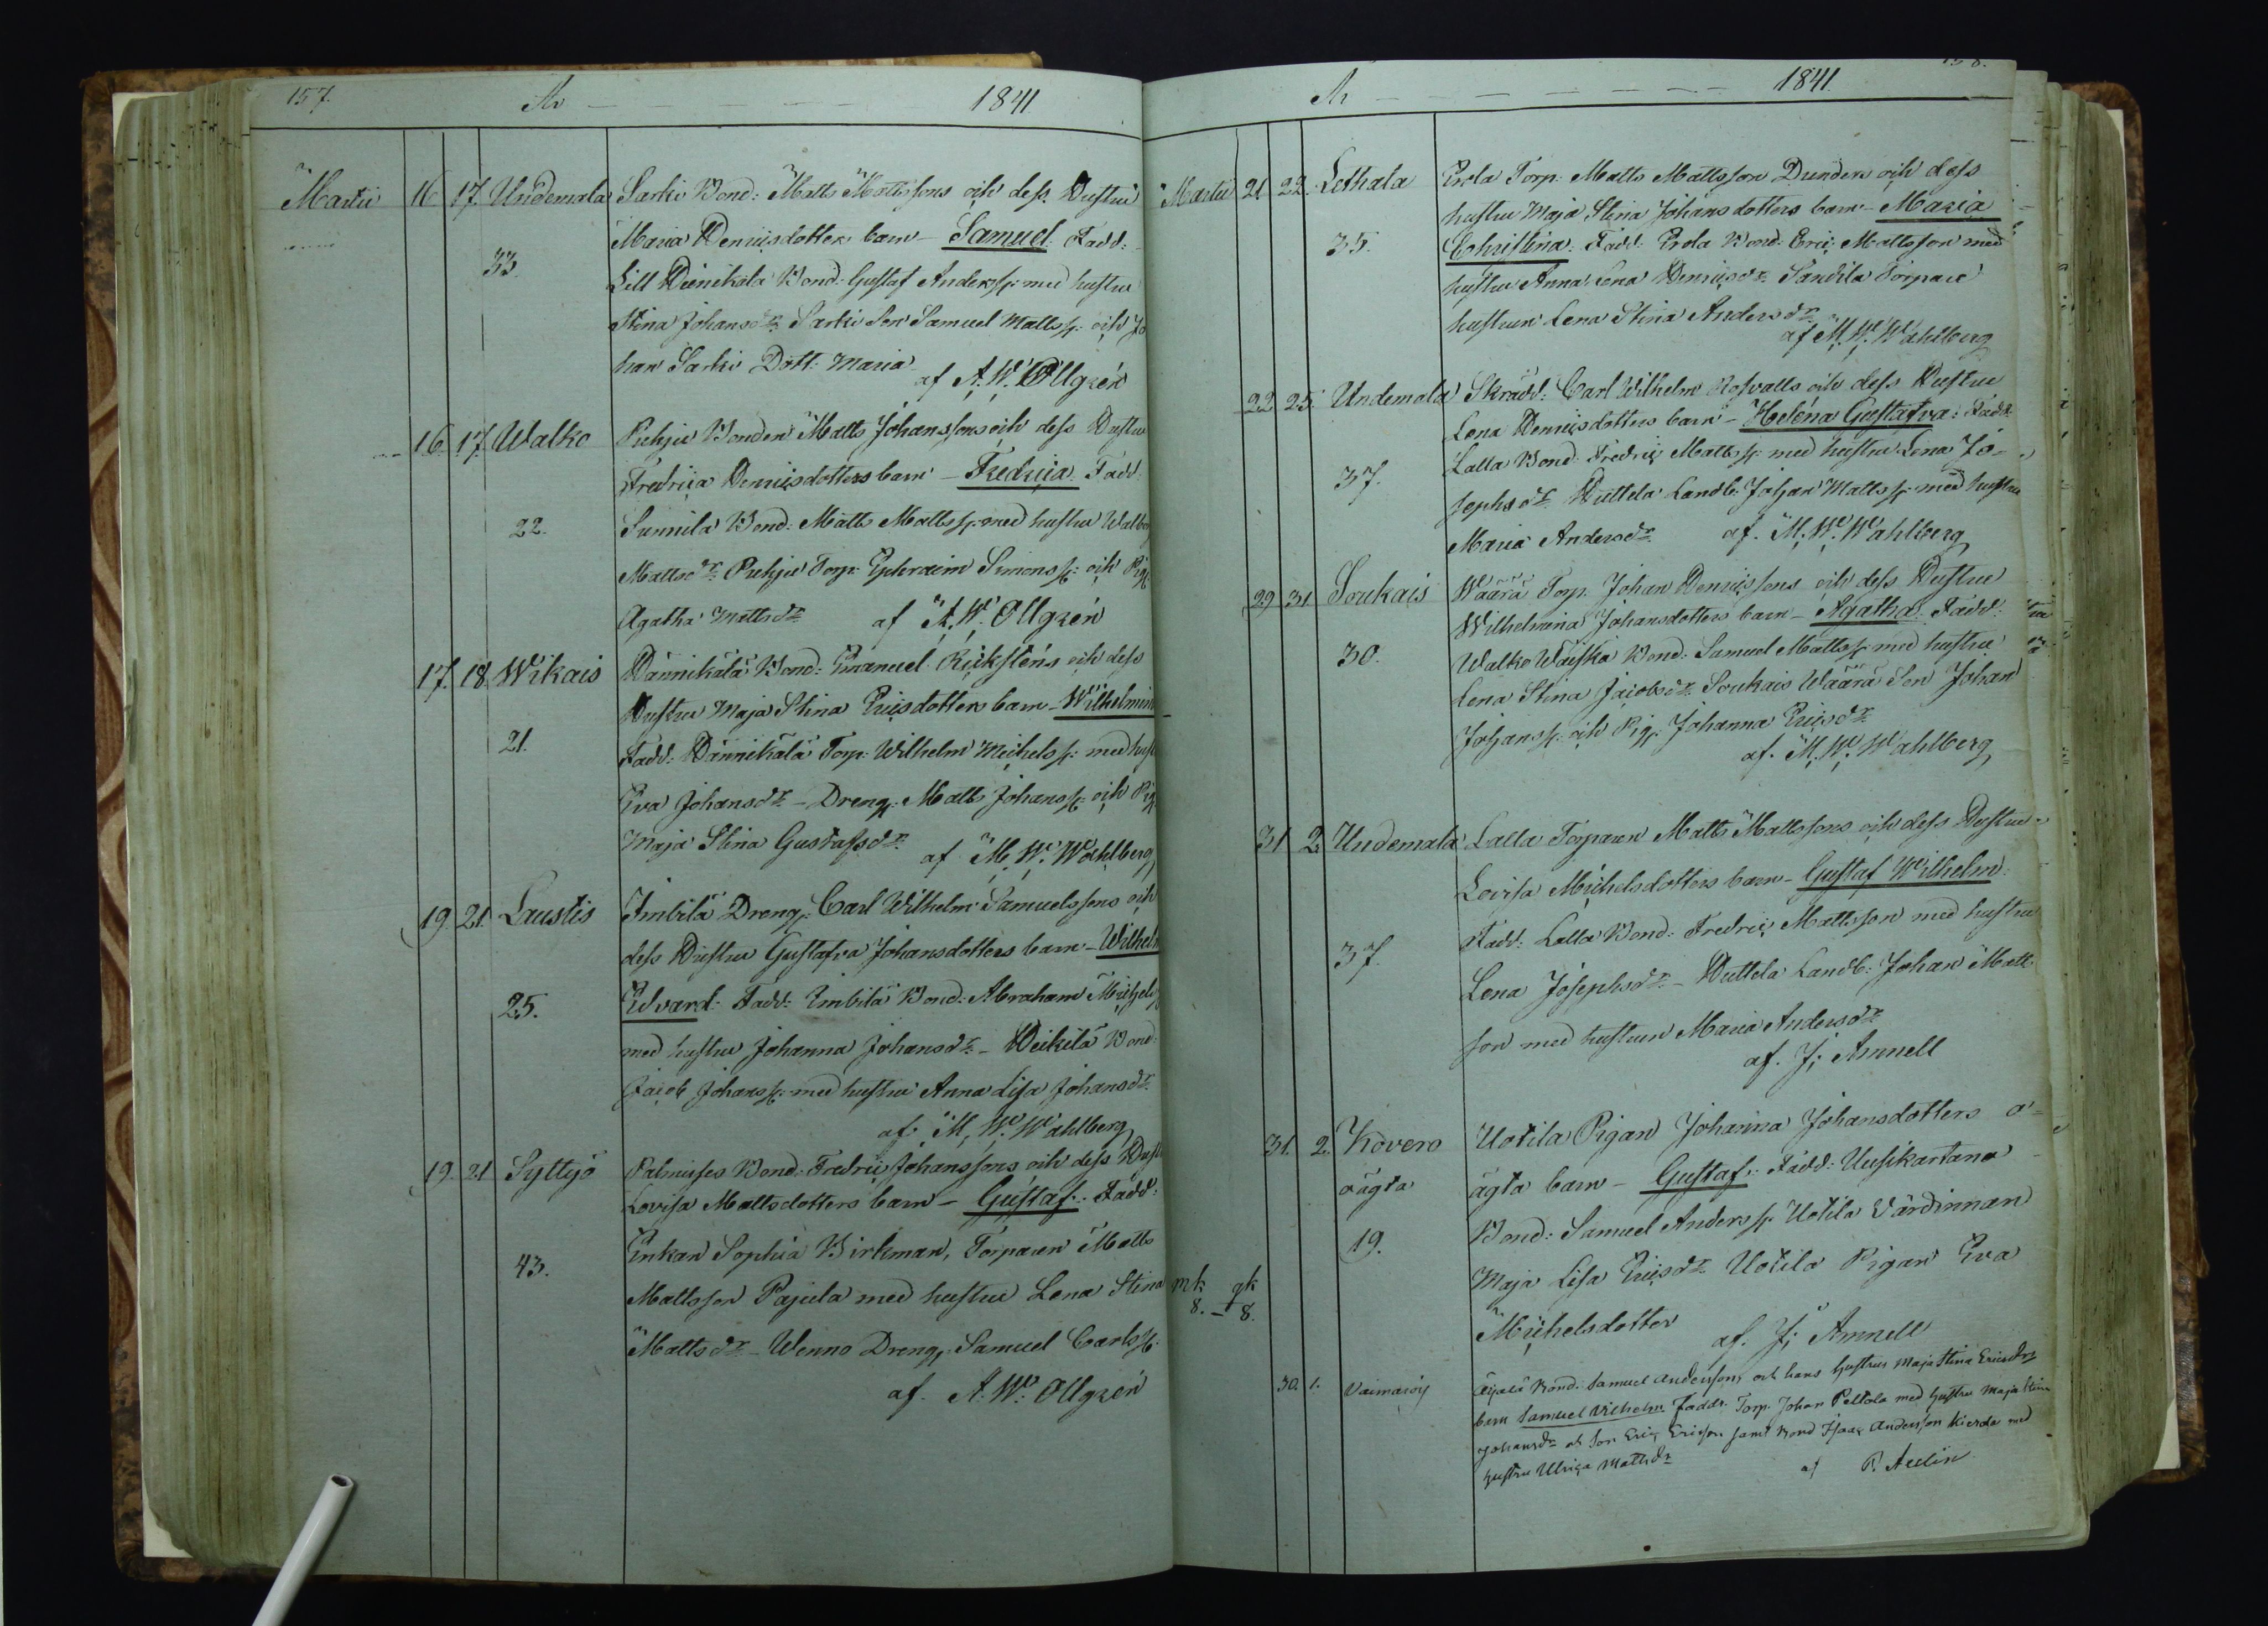 157. År 1841.
Martii 16 17. Undemala Sarki Bond: Matts Mattssons och dess Hustru
Maria Henricsdotters barn – Samuel. Fadd:
33.
Lill Heinikala Bond: Gustaf Anderss: med hustru
Stina Johansdr. Sarki Son Samuel Mattss: och Jo
han Sarki Dott: Maria
af A. W. Ollgrén
16. 17. Walko Puhju Bonden Matts Johanssons och dess Hustru
Fredrica Henricsdotters barn – Fredrica. Fadd.
22. Sunnila Bond: Matts Mattss: med hustru Walbor
Mattsdr. Puhju Torp: Ephraim Simonss: och Pig:
Agatha Mattsdr. af A. W. Ollgrén
17. 18. Wikais Hännikälä Bond: Emanuel Rickstens och dess
Hustru Maja Stina Ericsdotters barn – Wilhelmin
21. Fadd: Hännikälä Torp: Wilhelm Michelss: med hust
Eva Johansdr. – Dreng: Matts Johanss: och Pig
Maja Stina Gustafsdr.
af M. W. Wahlberg
19. 21. Laustis Imbilä Dreng: Carl Wilhelm Samuelssons och
dess Hustru Gustafva Johansdotters barn – Wilhelm
25. Edvard. Fadd: Imbilä Bond: Abraham Michels
med hustru Johanna Johansdr. – Heikilä Bond:
Jacob Johanss: med hustru Anna Lisa Johansdr.
af M. W. Wahlberg
19. 21 Syttyö Palmuses Bond: Fredric Johanssons och dess Hust
Lovisa Mattsdotters barn – Gustaf. Fadd:
43. Enkan Sophia Birkman, Torparen Matts
Mattsson Pajula med hustru Lena Stina
Mattsdr. – Wenno Dreng: Samuel Carlss:
af A. W. Ollgrén
158.
År 1841.
Martii 21. 22. Lethala Erola Torp: Matts Mattsson Dunders och dess
hustru Maja Stina Johansdotters barn – Maria
35. Christina. Fadd: Erola Bond: Eric Mattsson med
hustru Anna Lena Henricsdr. Sandila Torpare
hustrun Lena Stina Andersdr.
af M. W. Wahlberg
22 25. Undemala Skrädd: Carl Wilhelm Rosvalls och dess Hustru
Lena Henricsdotters barn – Helena Gustafva: Fadd:
37. Lalla Bond: Fredric Mattss: med hustru Lena Jo-
sephsdr. Huttela Landb: Johan Mattss: med hustru
Maria Andersdr. af. M. W. Wahlberg
29 31. Soukais Wäärä Torp: Johan Henricssons och dess Hustru
Wilhelmina Johansdotters barn – Agatha: Fadd:
30. Walko Waiska Bond: Samuel Mattss: med hustru
Lena Stina Jacobsdr. Soukais Wäärä Son Johan
Johanss: och Pig: Johanna Ericsdr.
af. M. W. Wahlberg
31 2. Undemala Lalla Torparen Matts Mattssons och dess Hustru
Lovisa Michelsdotters barn – Gustaf Wilhelm:
37. Fadd: Lalla Bond: Fredric Mattsson med hustru
Lena Josephsdr. – Huttela Landb: Johan Matt
son med hustrun Maria Andersdr.
af. J; Amnell
31. 2. Kovero Uotila Pigan Johanna Johansdotters o-
oägta ägta barn – Gustaf: Fadd: Uusikartano
19. Bond: Samuel Anderss: Uotila Värdinnan
Maja Lisa Ericsdr. Uotila Pigan Eva
mk qk
8. – 8.
Michelsdotter
af. J; Amnell
30. 1. Vaimaröy Äijälä Bond. Samuel Anderssons och hans hustrus Maja Stina Ericsdrs
barn Samuel Vilhelm Faddr. Torp. Johan Peltola med hustru Maja Stina
Johansdr och Son Eric Ericson samt Bond Isaac Andersson Kierola med
hustru Ulrica Mattsdr af P. Aulin